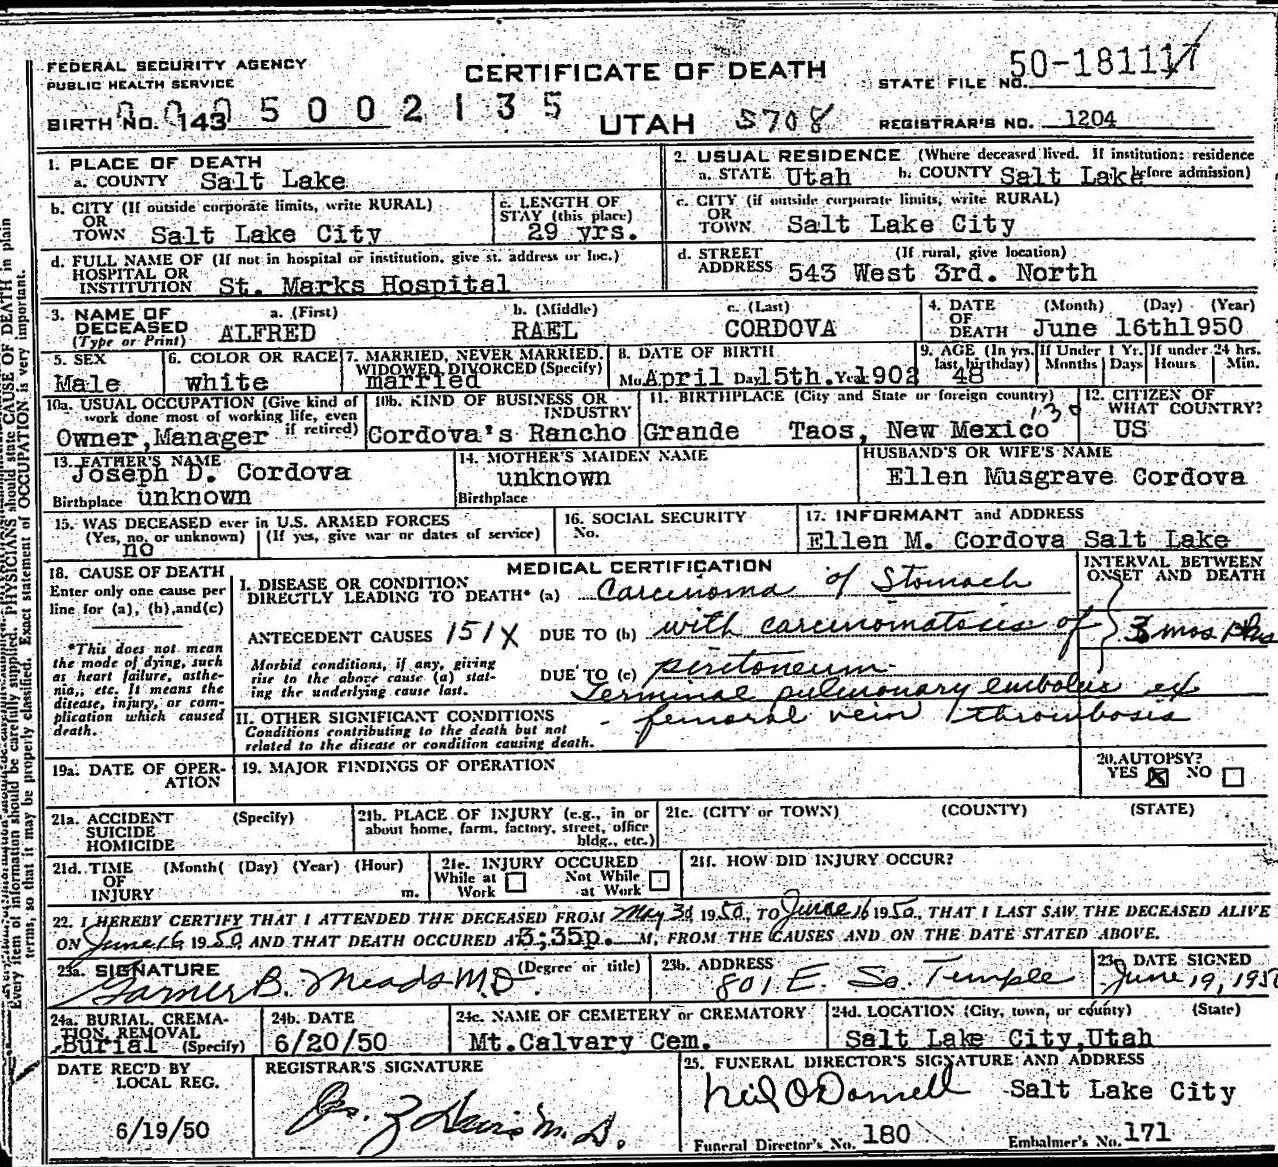 FEDERAL SECURITY AGENCY
PUBLIC HEALTH SERVICE
CERTIFICATE OF DEATH
STATE FILE NO. 50-181117
BIRTH NO. 143 0005002135
UTAH 5708
REGISTRAR'S NO. 1204
1. PLACE OF DEATH
a. COUNTY Salt Lake
2. USUAL RESIDENCE (Where deceased lived. If institution: residence before admission)
a. STATE Utah b. COUNTY Salt Lake
b. CITY (If outside corporate limits, write RURAL)
OR
TOWN Salt Lake City
c. LENGTH OF
STAY (this place)
29 yrs.
c. CITY (if outside corporate limits, write RURAL)
OR
TOWN Salt Lake City
d. FULL NAME OF (If not in hospital or institution, give st. address or loc.)
HOSPITAL OR
INSTITUTION St. Marks Hospital
d. STREET (If rural, give location)
ADDRESS 543 West 3rd. North
3. NAME OF DECEASED (Type or Print)
a. (First) ALFRED
b. (Middle) RAEL
c. (Last) CORDOVA
4. DATE OF DEATH (Month) (Day) (Year)
June 16th1950
5. SEX
Male
6. COLOR OR RACE
white
7. MARRIED, NEVER MARRIED,
WIDOWED DIVORCED (Specify)
married
8. DATE OF BIRTH
Mo. April Day 15th. Year 1902
9. AGE (In yrs. last birthday)
48
If Under 1 Yr. Months Days
If under 24 hrs. Hours Min.
10a. USUAL OCCUPATION (Give kind of
work done most of working life, even
if retired)
Owner,Manager
10b. KIND OF BUSINESS OR
INDUSTRY
Cordova's Rancho Grande
11. BIRTHPLACE (City and State or foreign country)
Taos, New Mexico
12. CITIZEN OF
WHAT COUNTRY?
US
13. FATHER'S NAME
Joseph D. Cordova
Birthplace unknown
14. MOTHER'S MAIDEN NAME
unknown
Birthplace
HUSBAND'S OR WIFE'S NAME
Ellen Musgrave Cordova
15. WAS DECEASED ever in U.S. ARMED FORCES
(Yes, no, or unknown) (If yes, give war or dates of service)
no
16. SOCIAL SECURITY
No.
17. INFORMANT and ADDRESS
Ellen M. Cordova Salt Lake
18. CAUSE OF DEATH
Enter only one cause per
line for (a), (b), and (c)
*This does not mean
the mode of dying, such
as heart failure, asthe-
nia,, etc. It means the
disease, injury, or com-
plication which caused
death.
MEDICAL CERTIFICATION
INTERVAL BETWEEN
ONSET AND DEATH
I. DISEASE OR CONDITION
DIRECTLY LEADING TO DEATH* (a) Carcinoma of Stomach
ANTECEDENT CAUSES 151X DUE TO (b) with carcinomatosis of
3 mos plus
Morbid conditions, if any, giving
rise to the above cause (a) stat-
ing the underlying cause last.
DUE TO (c) peritoneum
Terminal pulmonary embolus ex
II. OTHER SIGNIFICANT CONDITIONS
- femoral vein thrombosis
Conditions contributing to the death but not
related to the disease or condition causing death.
19a. DATE OF OPER-
ATION
19. MAJOR FINDINGS OF OPERATION
20. AUTOPSY?
YES X NO
21a. ACCIDENT (Specify)
SUICIDE
HOMICIDE
21b. PLACE OF INJURY (e.g., in or
about home, farm, factory, street, office
bldg., etc.)
21c. (CITY or TOWN) (COUNTY) (STATE)
21d. TIME (Month( (Day) (Year) (Hour)
OF
INJURY m.
21e. INJURY OCCURED
While at Work Not While at Work
21f. HOW DID INJURY OCCUR?
22. I HEREBY CERTIFY THAT I ATTENDED THE DECEASED FROM May 3d 1950, TO June 16 1950, THAT I LAST SAW THE DECEASED ALIVE
ON June 16 1950 AND THAT DEATH OCCURED AT 3;35p. M, FROM THE CAUSES AND ON THE DATE STATED ABOVE.
23a. SIGNATURE (Degree or title)
Garner B. Meads M.D.
23b. ADDRESS
801 E. So. Temple
23c. DATE SIGNED
June 19, 1950
24a. BURIAL, CREMA-
TION, REMOVAL
Burial (Specify)
24b. DATE
6/20/50
24c. NAME OF CEMETERY or CREMATORY
Mt.Calvary Cem.
24d. LOCATION (City, town, or county) (State)
Salt Lake City,Utah
DATE REC'D BY
LOCAL REG.
6/19/50
REGISTRAR'S SIGNATURE
25. FUNERAL DIRECTOR'S SIGNATURE AND ADDRESS
Neil O'Donnell Salt Lake City
Funeral Director's No. 180 Embalmer's No. 171
Every item of information should be carefully supplied. PHYSICIANS should state CAUSE OF DEATH in plain
terms, so that it may be properly classified. Exact statement of OCCUPATION is very important.